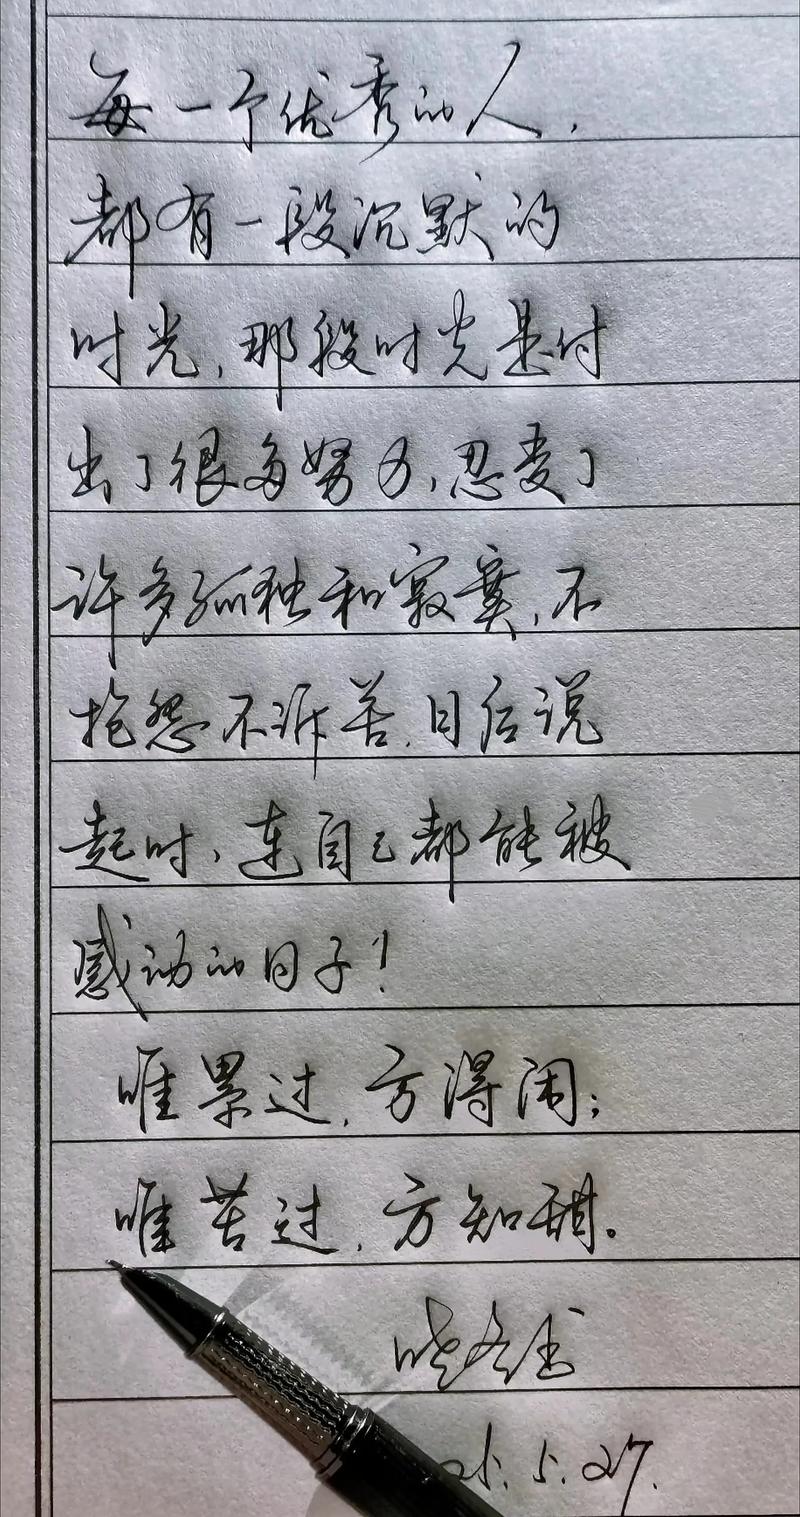 每一个优秀的人,
都有一段沉默的
时光,那段时光是付
出了很多努力,忍受了
许多孤独和寂寞,不
抱怨不诉苦,日后说
起时,连自己都能被
感动的日子!
唯累过,方得闲;
唯苦过,方知甜。
25.5.27.